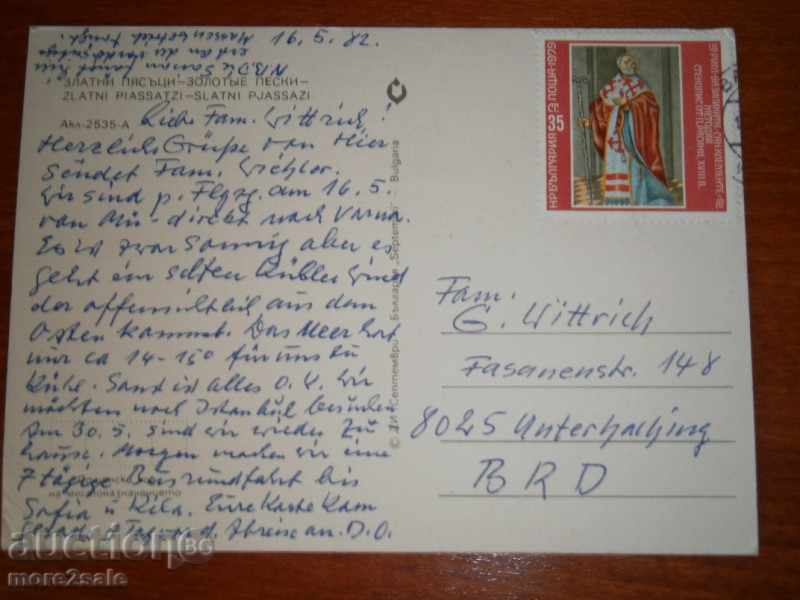 16.5.82.
N.B. Die
ЗЛАТНИ ПЯСЪЦИ–ЗОЛОТЫЕ ПЕСКИ–
ZLATNI PIASSATZI–SLATNI PJASSAZI
Акл-2535-А
Liebe Fam. Wittrich!
Herzliche Grüße von Hier
sendet Fam.
Wir sind p. Flgzg. am 16.5.
von Mü- direkt nach Varna.
Es ist zwar sonnig aber es
geht ein kühler Wind
der aus dem
Osten kommt. Das Meer hat
nur ca 14-15° für uns zu
Kühl. Sonst ist alles O.K. Wir
möchten noch Istanbul besuchen
Am 30.5. sind wir wieder zu
hause. Morgen machen wir eine
7 tägige Busrundfahrt bis
Sofia u Rila. Eure Karte kam
Tag d. Abreise an. D.O.
© ДИ „Септември" България „Septemvri" Bulgaria
НР БЪЛГАРИЯ ПОЩА 1979
35
Fam.
G. Wittrich
Fasanenstr. 148
8025 Unterhaching
BRD
auction BG
more2sale